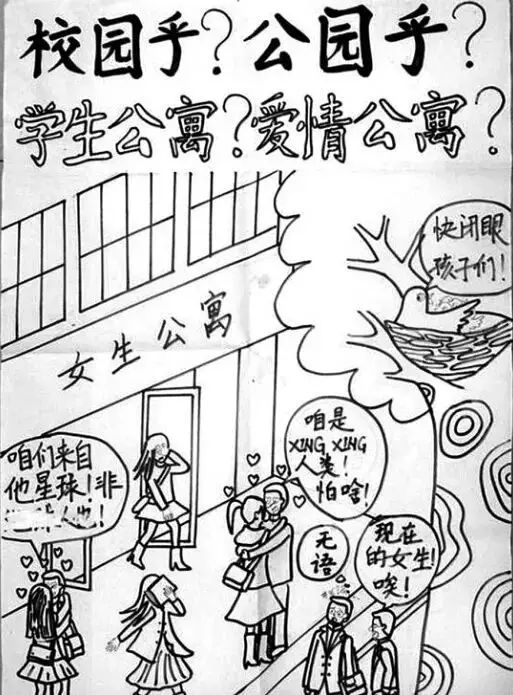 校园乎?公园乎?
学生公寓?爱情公寓?
快闭眼
孩子们!
女生公寓
咱是
XING XING
人类!
怕啥!
咱们来自
他星球!非
人也!
无语
现在
的女生!
唉!